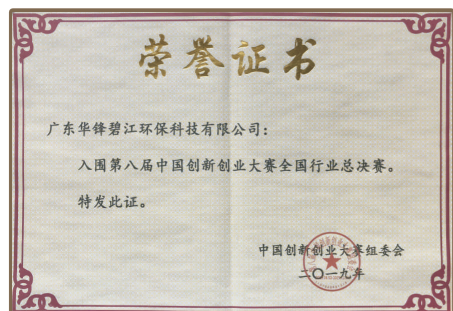 荣誉证书
广东华锋碧江环保科技有限公司：
入围第八届中国创新创业大赛全国行业总决赛。
特发此证。
中国创新创业大赛组委会
二〇一九年